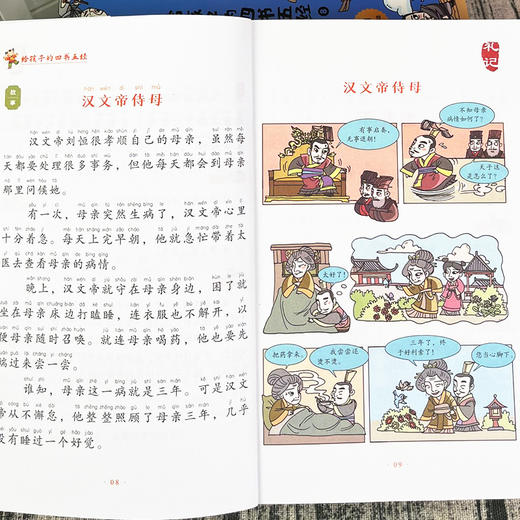 四书五经
给孩子的四书五经
故事
汉文帝侍母
汉文帝刘恒很孝顺自己的母亲，虽然每
天都要处理很多事务，但他每天都会到母亲
那里问候她。
有一次，母亲突然生病了，汉文帝心里
十分着急。每天上完早朝，他就急忙带着太
医去查看母亲的病情。
晚上，汉文帝就守在母亲身边，困了就
坐在母亲床边打瞌睡，连衣服也不解开，以
便母亲随时召唤。就连母亲喝药，他也要先
端过来尝一尝。
谁知，母亲这一病就是三年。可是汉文
帝从不懈怠，他整整照顾了母亲三年，几乎
没有睡过一个好觉。
08
礼记
汉文帝侍母
有事启奏，
无事退朝！
不知母亲
病情如何了？
天子这
是怎么了？
太好了！
把药拿来。
我尝尝还
烫不烫。
三年了，终
于好利索了！
您当心脚下。
09